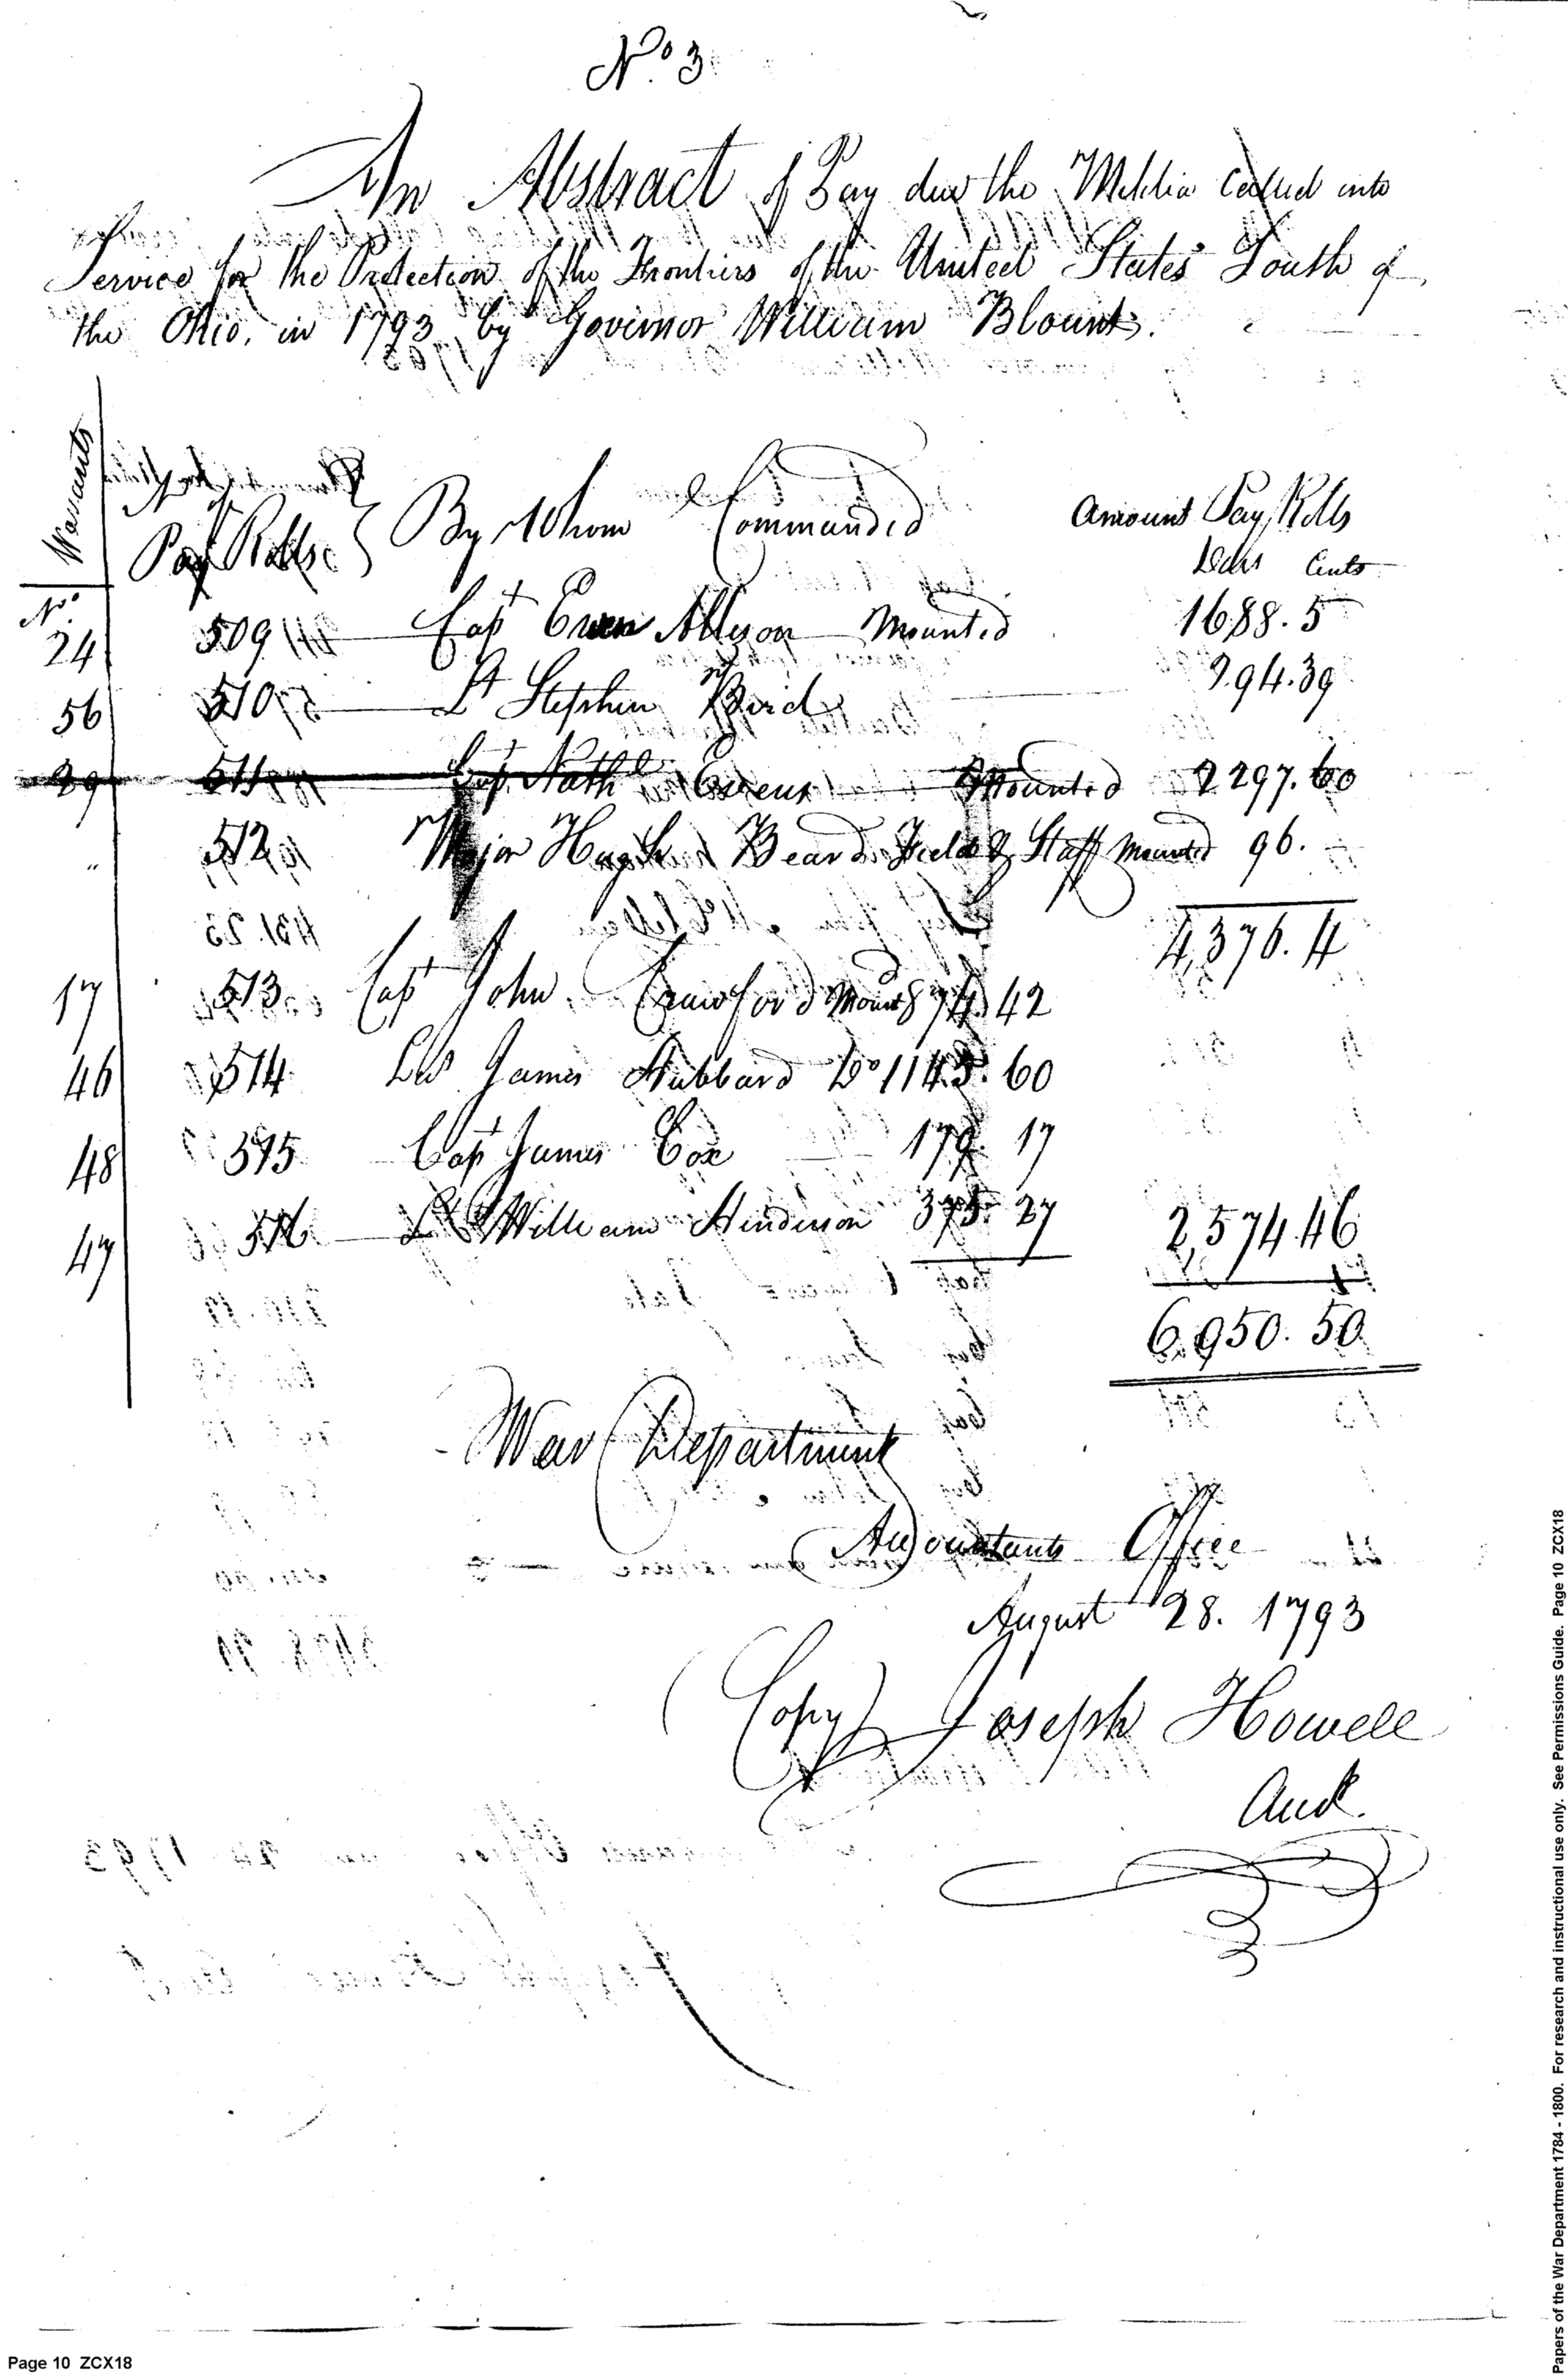 No. 3
An Abstract of Pay due the Militia Called into
Service for the Protection of the Frontiers of the United States South of
the Ohio, in 1793, by Governor William Blount.
Warrants
Pay Rolls By Whom Commanded Amount Pay Rolls
Dolls Cents
No.
24 509 Capt Ewen Allison Mounted 1688.5
56 510 Lt Stephen Bird 294.39
29 511 Capt Nathl Evens Mounted 2297.60
" 512 Major Hugh Beard Field & Staff Mounted 96.
4,376.4
17 513 Capt John Crawford Mount 874.42
46 514 James Hubbard Do 1145.60
48 515 Capt James Cox 179.17
47 516 Lt William Henderson 375.27 2,574.46
6,950.50
War Department
Accountants Office
August 28. 1793
(Copy) Joseph Howell
Acct.
Page 10 ZCX18
Papers of the War Department 1784 - 1800. For research and instructional use only. See Permissions Guide. Page 10 ZCX18